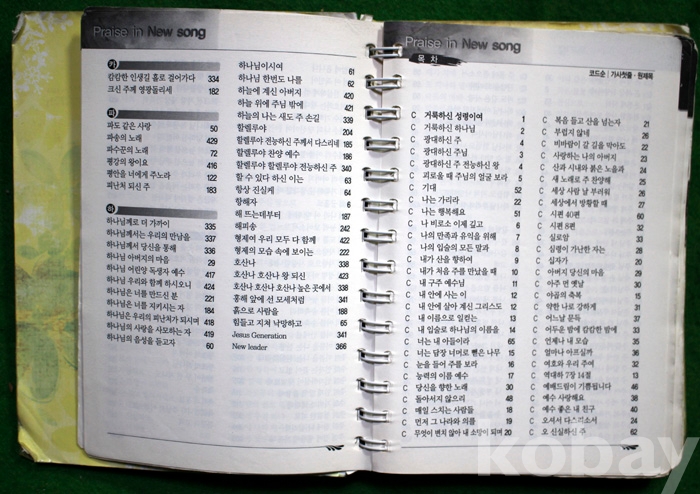 Praise in New song
카
캄캄한 인생길 홀로 걸어가다 334
크신 주께 영광돌리세 182
파
파도 같은 사랑 50
파송의 노래 429
파수꾼의 노래 72
평강의 왕이요 416
평안을 너에게 주노라 122
피난처 되신 주 183
하
하나님께로 더 가까이 335
하나님께서는 우리의 만남을 337
하나님께서 당신을 통해 336
하나님 아버지의 마음 29
하나님 어린양 독생자 예수 417
하나님 우리와 함께 하시오니 424
하나님은 너를 만드신 분 221
하나님은 너를 지키시는 자 184
하나님은 우리의 피난처가 되시며 418
하나님의 사랑을 사모하는 자 419
하나님의 음성을 듣고자 60
하나님이시여 61
하나님 한번도 나를 62
하늘에 계신 아버지 420
하늘 위에 주님 밖에 421
하늘의 나는 새도 주 손길 339
할렐루야 204
할렐루야 전능하신 주께서 다스리네 185
할렐루야 찬양 예수 186
할렐루야 할렐루야 전능하신 주 340
할 수 있다 하신 이는 63
항상 진실케 64
항해자 6
해 뜨는데부터 187
해피송 242
형제여 우리 모두 다 함께 422
형제의 모습 속에 보이는 222
호산나 338
호산나 호산나 왕 되신 423
호산나 호산나 호산나 높은 곳에서 188
홍해 앞에 선 모세처럼 341
흙으로 사람을 188
힘들고 지쳐 낙망하고 65
Jesus Generation 341
New leader 366
Praise in New song
목 차
코드순 | 가사첫줄 · 원제목
C 거룩하신 성령이여 1
C 거룩하신 하나님 2
C 광대하신 주 4
C 광대하신 주님 3
C 광대하신 주 전능하신 왕 4
C 괴로울 때 주님의 얼굴 보라 5
C 기대 52
C 나는 가리라 22
C 나는 행복해요 51
C 나 비로소 이제 깊고 6
C 나의 만족과 유익을 위해 7
C 나의 입술의 모든 말과 8
C 내가 산을 향하여 9
C 내가 처음 주를 만났을 때 10
C 내 구주 예수님 11
C 내 안에 사는 이 12
C 내 안에 살아 계신 그리스도 12
C 내 이름으로 일컫는 13
C 내 입술로 하나님의 이름을 14
C 너는 내 아들이라 65
C 너는 담장 너머로 뻗은 나무 15
C 눈을 들어 주를 보라 16
C 능력의 이름 예수 17
C 당신을 향한 노래 30
C 돌아서지 않으리 48
C 매일 스치는 사람들 18
C 먼저 그 나라와 의를 19
C 무엇이 변치 않아 내 소망이 되며 20
C 복음 들고 산을 넘는자 21
C 부럽지 않네 26
C 비바람이 갈 길을 막아도 22
C 사랑하는 나의 아버지 23
C 산과 시내와 붉은 노을과 24
C 새 노래로 주 찬양해 25
C 세상 사람 날 부러워 26
C 세상에서 방황할 때 27
C 시편 40편 60
C 시편 8편 32
C 실로암 33
C 심령이 가난한 자는 28
C 십자가 20
C 아버지 당신의 마음 29
C 아주 먼 옛날 30
C 야곱의 축복 15
C 약한 나로 강하게 31
C 어느날 문득 37
C 어두운 밤에 캄캄한 밤에 33
C 언제나 내 모습 34
C 얼마나 아프실까 36
C 여호와 우리 주여 32
C 역대하 7장 14절 13
C 예배드림이 기쁩니다 46
C 예수 사랑해요 38
C 예수 좋은 내 친구 40
C 오셔서 다스리소서 24
C 오 신실하신 주 62
kobay